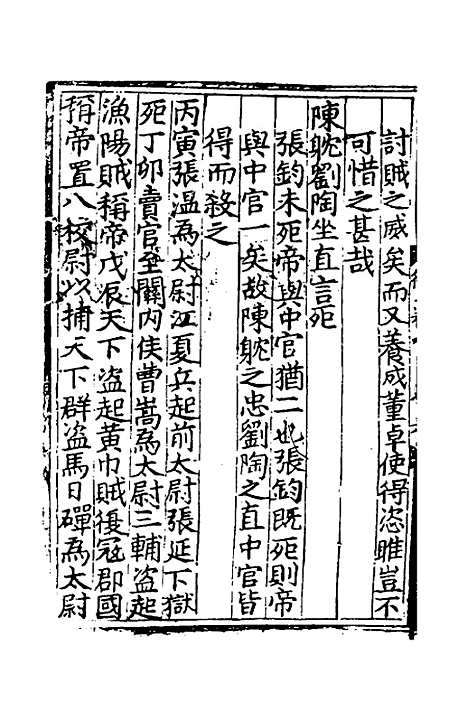 討賊之威矣而又養成董卓使得恣睢豈不
可惜之甚哉
陳耽劉陶坐直言死
張鈞未死帝與中官猶二也張鈞既死則帝
與中官一矣故陳躭之忠劉陶之直中官皆
得而殺之
丙寅張温為太尉江夏兵起前太尉張延下獄
死丁卯賣官至關内侯曹嵩為太尉三輔盗起
漁陽賊稱帝戊辰天下盗起黄巾賊復冦郡國
稱帝置八校尉以捕天下群盗馬日磾為太尉